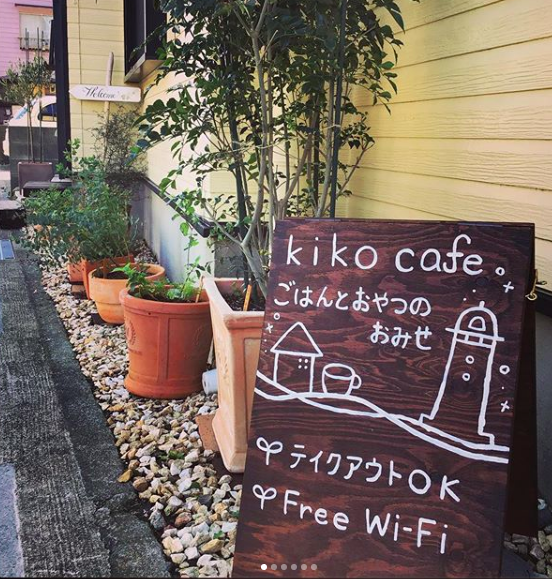 Welcome
kiko cafe
ごはんとおやつの
おみせ
テイクアウトOK
Free Wi-Fi